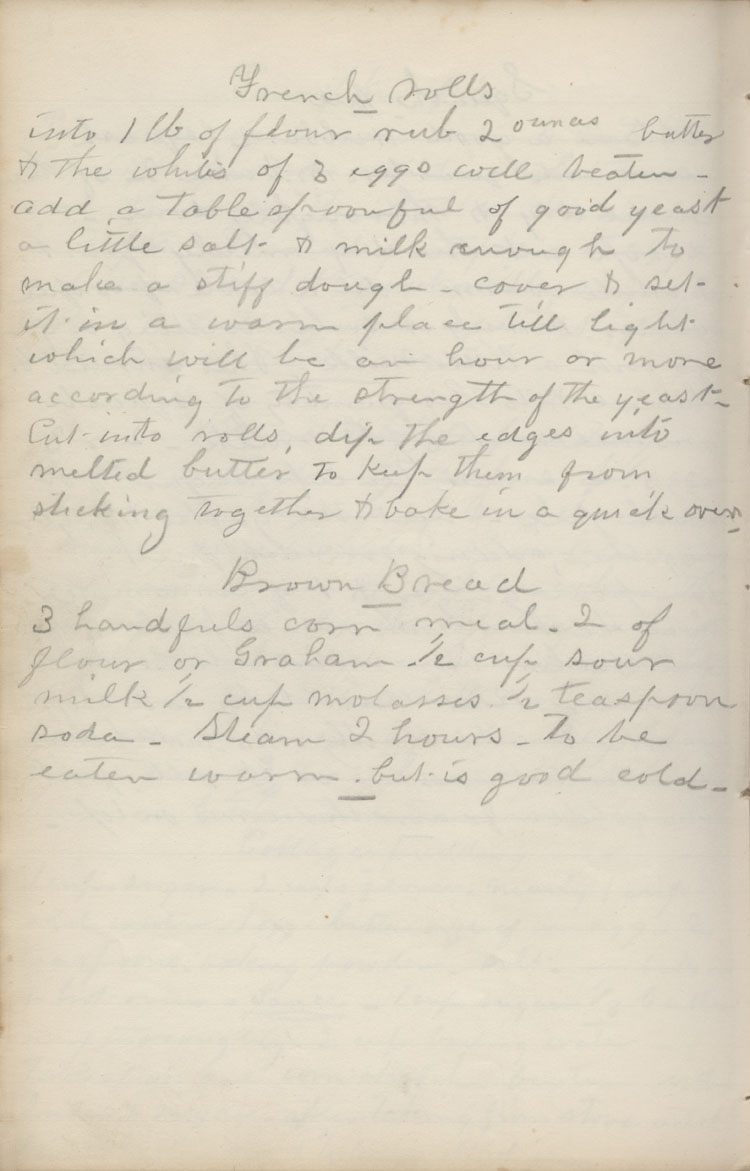 French rolls
into 1 lb of flour rub 2 ounces butter
& the whites of 3 eggs well beaten -
add a table spoonful of good yeast
a little salt & milk enough to
make a stiff dough - cover & set
it in a warm place till light
which will be an hour or more
according to the strength of the yeast -
Cut into rolls, dip the edges into
melted butter to keep them from
sticking together & bake in a quick oven -
Brown Bread
3 handfuls corn meal - 2 of
flour or Graham. 1/2 cup sour
milk 1/2 cup molasses 1/2 teaspoon
soda - Steam 2 hours - To be
eaten warm. but is good cold -